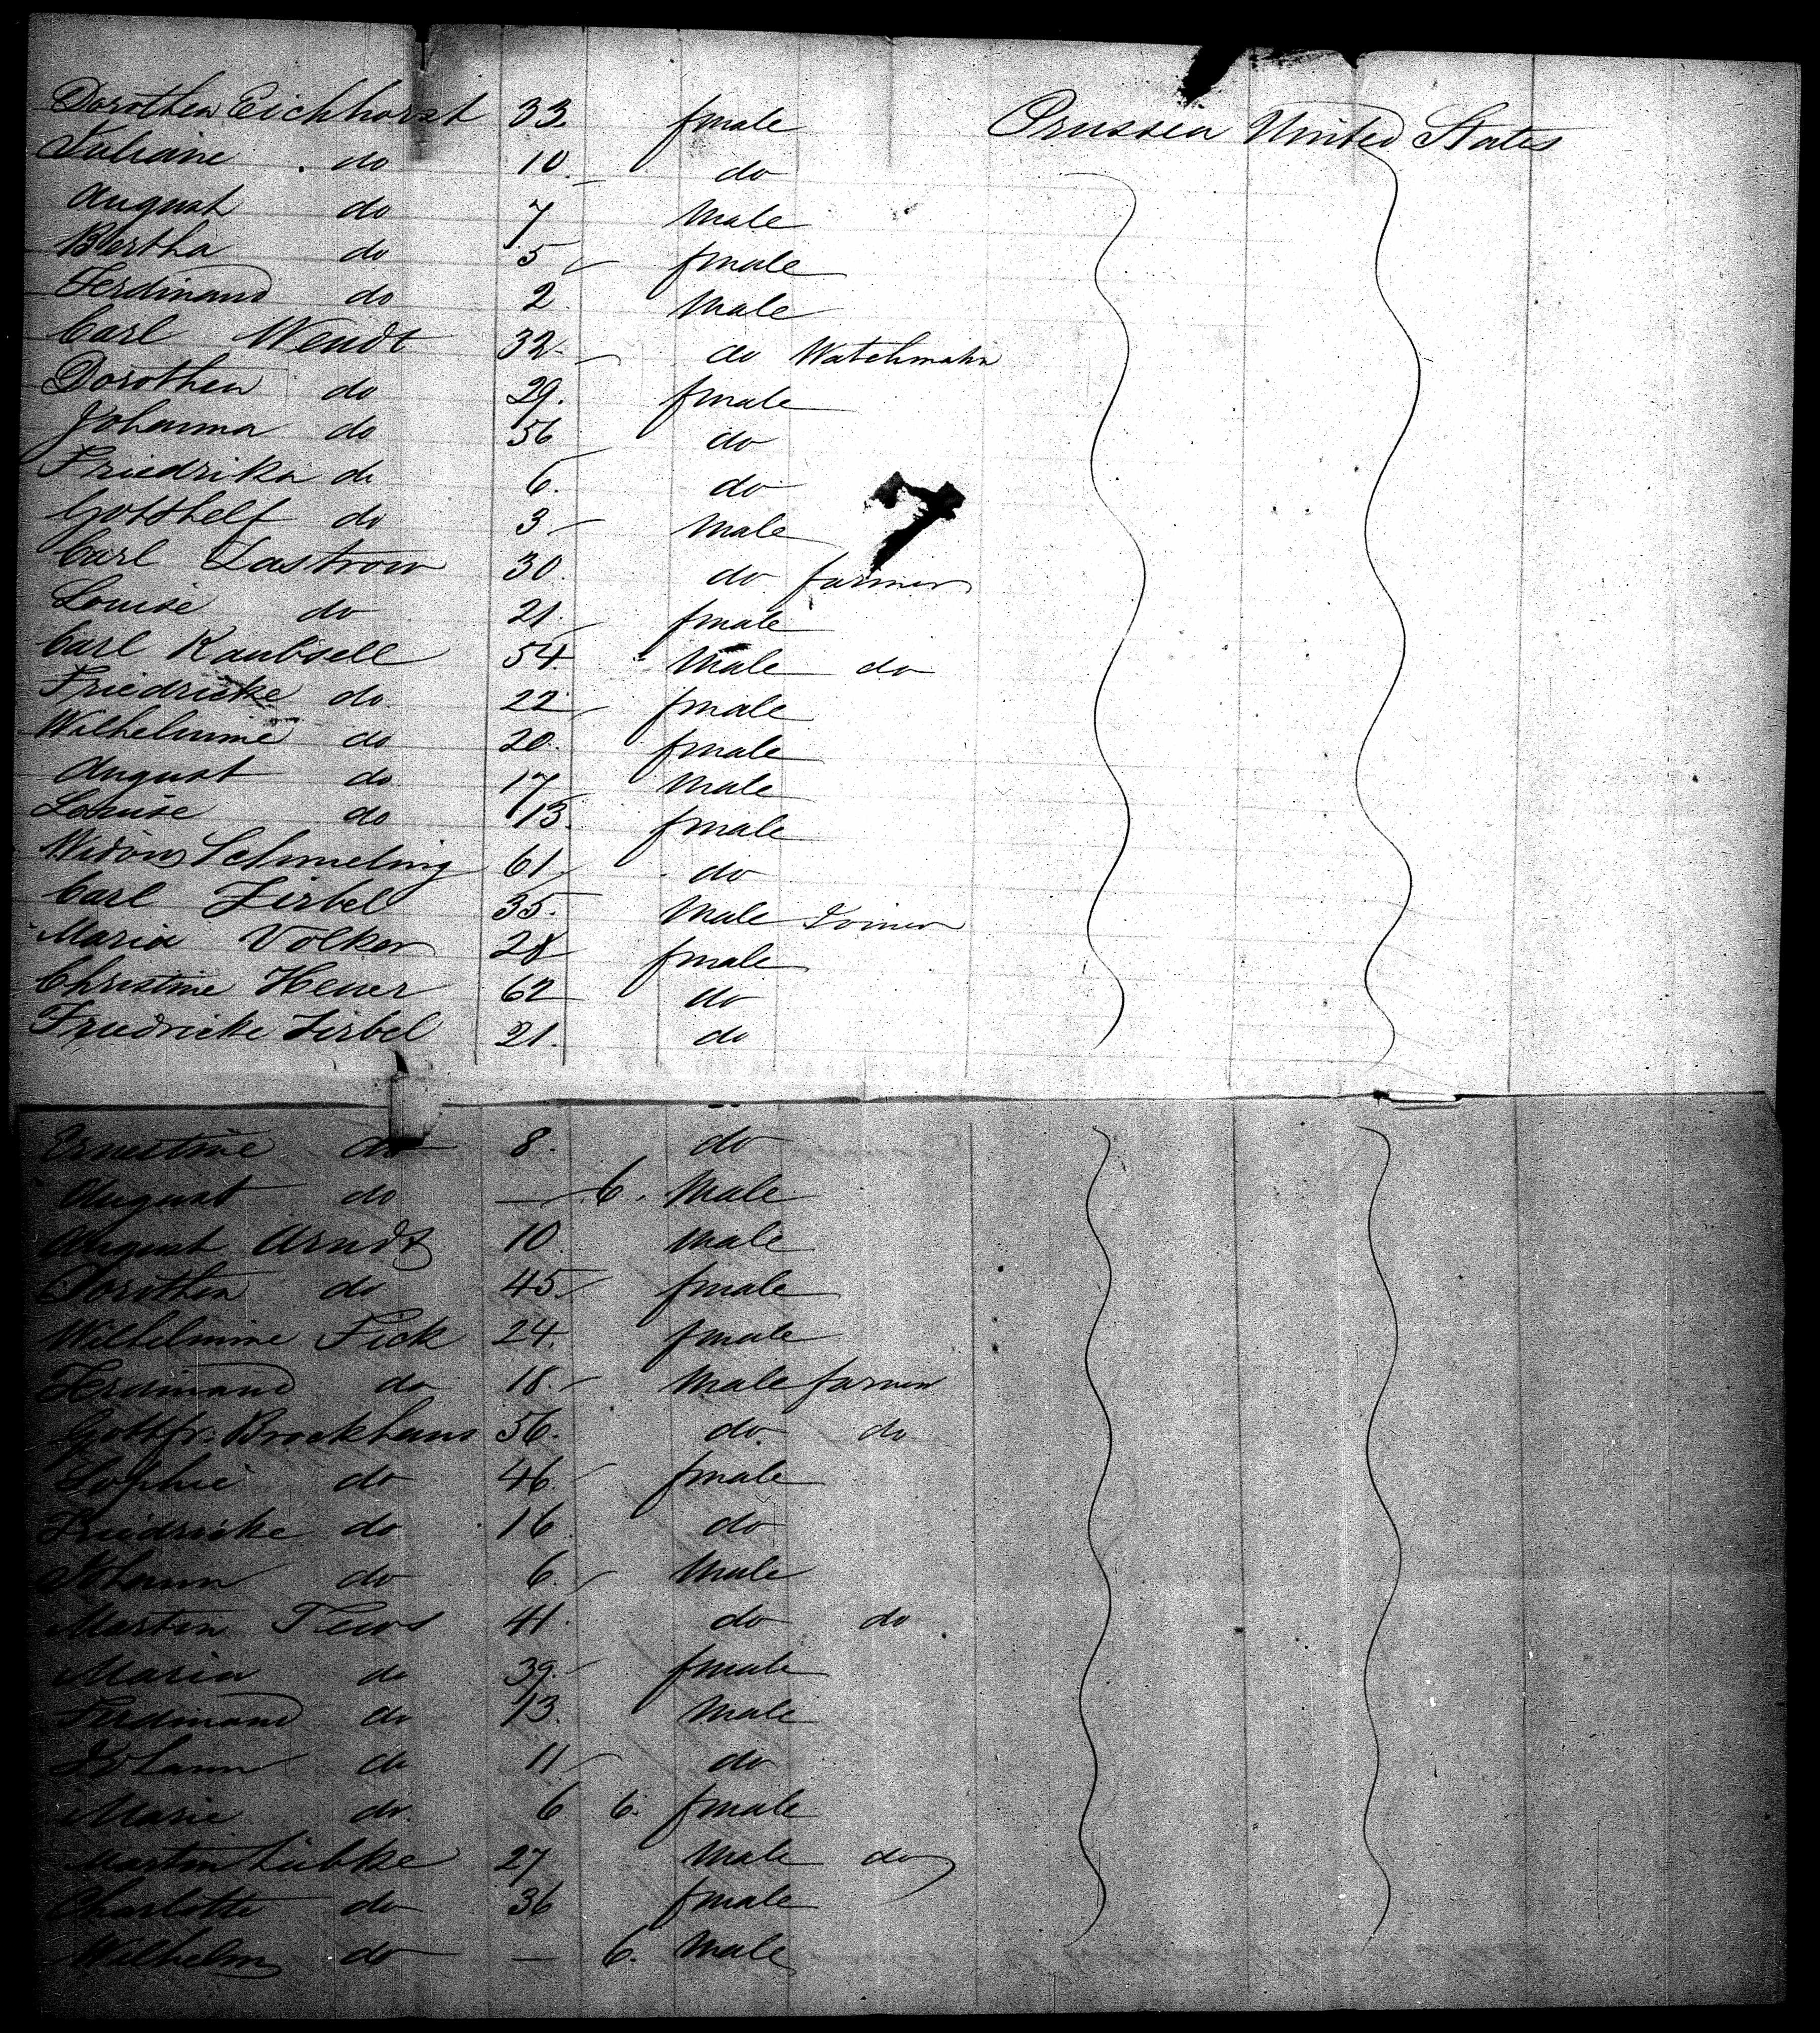 Dorothea Eichhorst 33. female Prussia United States
Juliane do 10. do
August do 7 Male
Bertha do 5 female
Ferdinand do 2. Male
Carl Wendt 32 do Watchmahn
Dorothea do 29. female
Johanna do 56 do
Friedrika do 6. do
Gotthelf do 3 Male
Carl Lastrow 30. do farmer
Louise do 21. female
Carl Raubsell 54. Male do
Friedricke do. 22 female
Wilhelmine do 20. female
August do. 17 Male
Louise do 13. female
Widow Schmeling 61 do
Carl Zirbel 35. Male Joiner
Maria Volker 28 female
Christine Heuer 62 do
Friedricke Zirbel 21. do
Ernestine do 8. do
August do — 6. Male
August Arndt 10 Male
Dorothea do 45 female
Wilhelmine Fick 24. female
Ferdinand do 18. Male farmer
Gottfr. Brockhaus 56. do do
Sophie do 46 female
Friedricke do 16 do
Johann do 6. Male
Martin Tews 41. do do
Maria do 39. female
Ferdinand do 13. Male
Johann do 11 do
Marie do. 6 6. female
Martin Lübke 27 Male do
Charlotte do 36 female
Wilhelm do — 6. Male